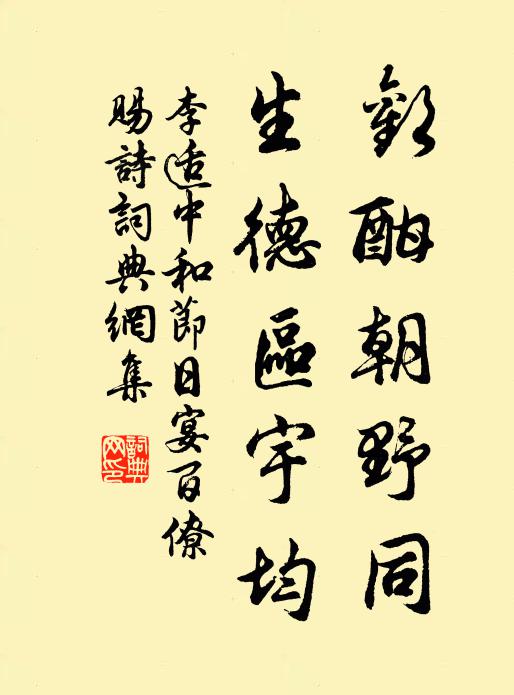 歡酣朝野同
生德區宇均
李适中和節日宴百僚
賜詩詞典網集
詞典网印